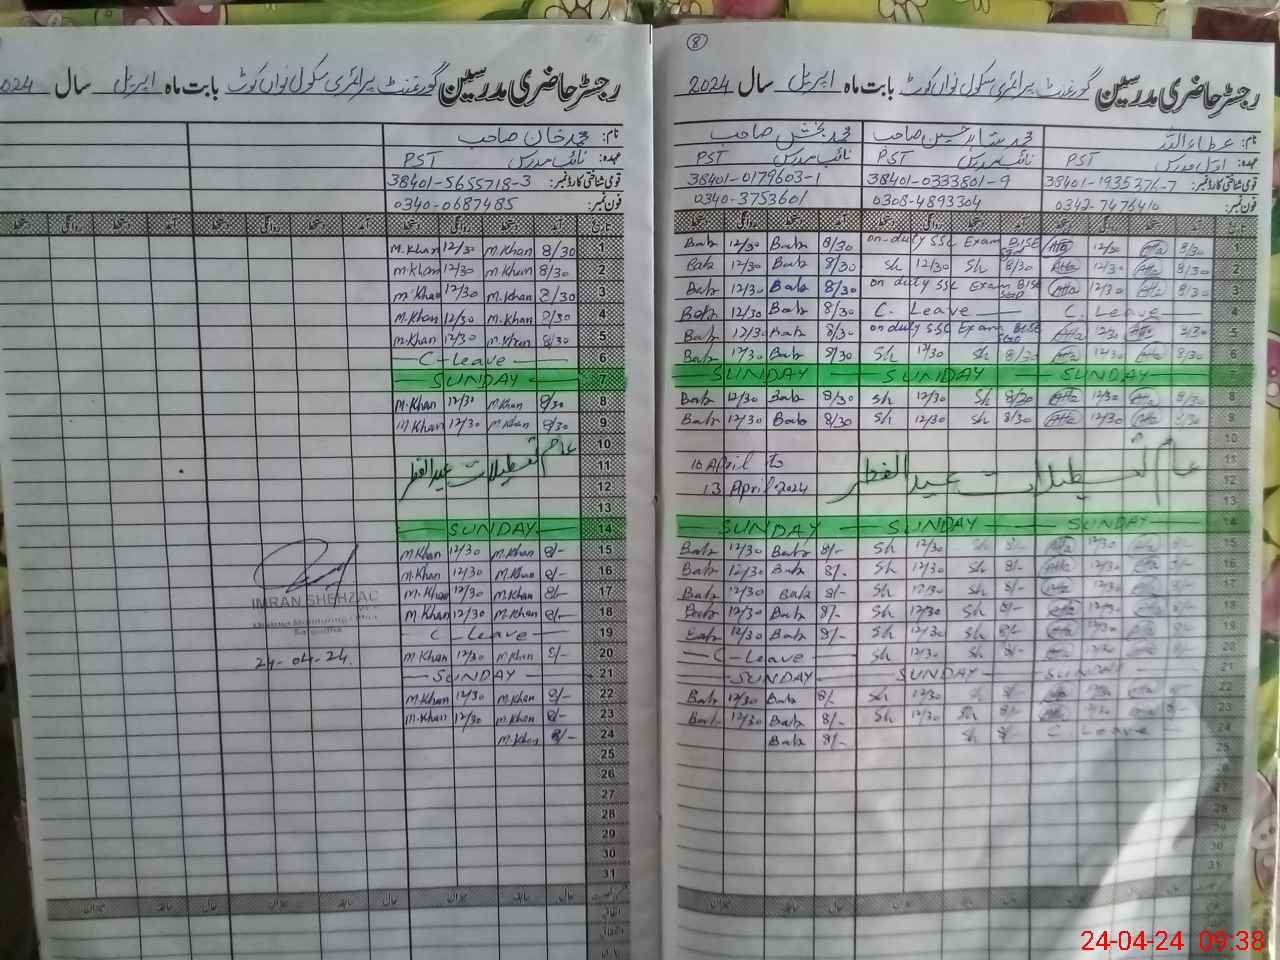 8
رجسٹر حاضری مدرسین گورنمنٹ پرائمری سکول نواں کوٹ بابت ماہ اپریل سال 2024
نام: عطاء اللہ
عہدہ: اول مدرس PST
قومی شناختی کارڈ نمبر: 38401-1935276-7
فون نمبر: 0342-7476410
محمد شاہد حسین صاحب
نائب مدرس PST
38401-0333801-9
0308-4893304
محمد بخش صاحب
نائب مدرس PST
38401-0179603-1
0340-3753601
تاریخ آمد دستخط روانگی دستخط آمد دستخط روانگی دستخط آمد دستخط روانگی دستخط
1 8/30 Atta 12/30 Atta on-duty SSC Exam BISE SGD 8/30 Bab 12/30 Bab
2 8/30 Atta 12/30 Atta 8/30 Sh 12/30 Sh 8/30 Bab 12/30 Bab
3 8/30 Atta 12/30 Atta on duty SSC Exam BISE SGD 8/30 Bab 12/30 Bab
4 C. Leave C. Leave 8/30 Bab 12/30 Bab
5 8/30 Atta 12/30 Atta on duty SSC Exam BISE SGD 8/30 Bab 12/30 Bab
6 8/30 Atta 12/30 Atta 8/30 Sh 12/30 Sh 8/30 Bab 12/30 Bab
7 SUNDAY SUNDAY SUNDAY
8 8/30 Atta 12/30 Atta 8/30 Sh 12/30 Sh 8/30 Bab 12/30 Bab
9 8/30 Atta 12/30 Atta 8/30 Sh 12/30 Sh 8/30 Bab 12/30 Bab
10
11 عام تعطیلات عید الفطر 10 April to
12 13 April 2024
13
14 SUNDAY SUNDAY SUNDAY
15 8/- Atta 12/30 Atta 8/- Sh 12/30 Sh 8/- Bab 12/30 Bab
16 8/- Atta 12/30 Atta 8/- Sh 12/30 Sh 8/- Bab 12/30 Bab
17 8/- Atta 12/30 Atta 8/- Sh 12/30 Sh 8/- Bab 12/30 Bab
18 8/- Atta 12/30 Atta 8/- Sh 12/30 Sh 8/- Bab 12/30 Bab
19 8/- Atta 12/30 Atta 8/- Sh 12/30 Sh 8/- Bab 12/30 Bab
20 8/- Atta 12/30 Atta 8/- Sh 12/30 Sh C-Leave
21 SUNDAY SUNDAY SUNDAY
22 8/- Atta 12/30 Atta 8/- Sh 12/30 Sh 8/- Bab 12/30 Bab
23 8/- Atta 12/30 Atta 8/- Sh 12/30 Sh 8/- Bab 12/30 Bab
24 C. Leave 8/- Sh 8/- Bab
25
26
27
28
29
30
31
رجسٹر حاضری مدرسین گورنمنٹ پرائمری سکول نواں کوٹ بابت ماہ اپریل سال 2024
نام: محمد خان صاحب
عہدہ: نائب مدرس PST
قومی شناختی کارڈ نمبر: 38401-5655718-3
فون نمبر: 0340-0687485
تاریخ آمد دستخط روانگی دستخط آمد دستخط روانگی دستخط آمد دستخط روانگی دستخط
1 8/30 M.Khan 12/30 M.Khan
2 8/30 M.Khan 12/30 M.Khan
3 8/30 M.Khan 12/30 M.Khan
4 8/30 M.Khan 12/30 M.Khan
5 8/30 M.Khan 12/30 M.Khan
6 C-Leave
7 SUNDAY
8 8/30 M.Khan 12/30 M.Khan
9 8/30 M.Khan 12/30 M.Khan
10
11 عام تعطیلات عید الفطر
12
13
14 SUNDAY
15 8/- M.Khan 12/30 M.Khan
16 8/- M.Khan 12/30 M.Khan
17 8/- M.Khan 12/30 M.Khan
18 8/- M.Khan 12/30 M.Khan
19 C-Leave
20 8/- M.Khan 12/30 M.Khan
21 SUNDAY
22 8/- M.Khan 12/30 M.Khan
23 8/- M.Khan 12/30 M.Khan
24 8/- M.Khan
25
26
27
28
29
30
31
IMRAN SHEHZAD
Sargodha
24-04-24.
حال سابقہ میزان حال سابقہ میزان
24-04-24 09:38